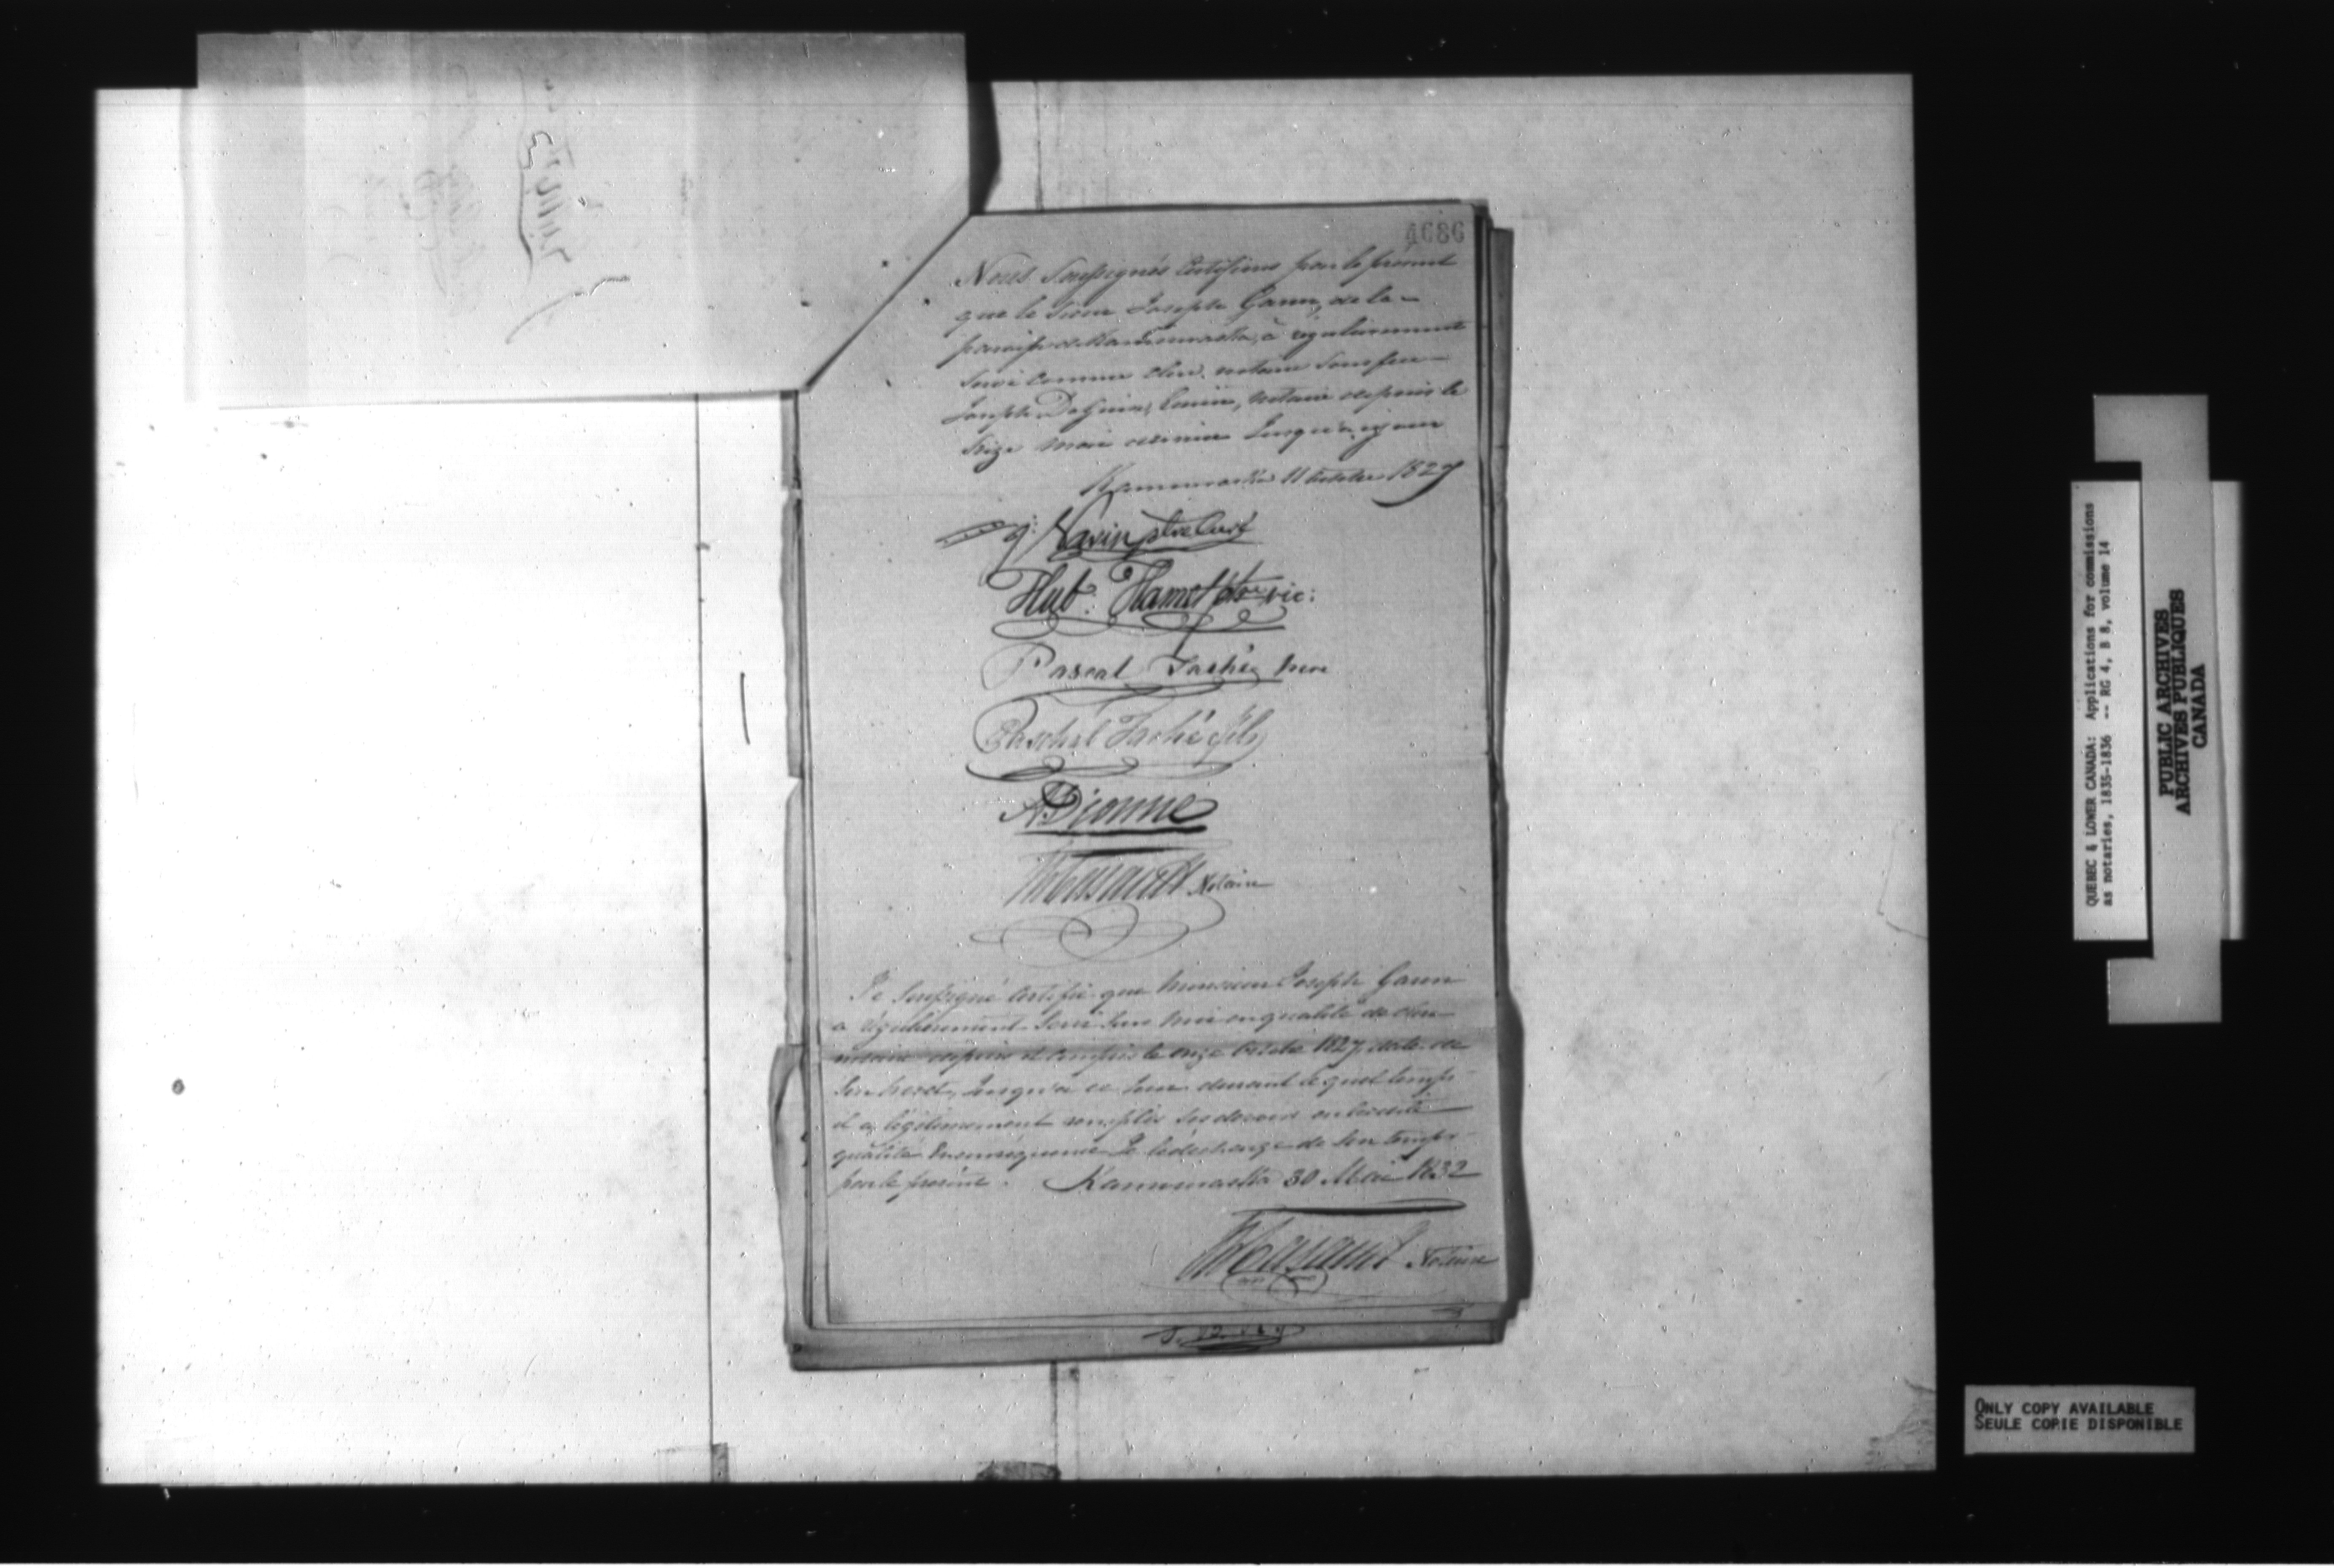 4686
Nous Soussignés Certifions par le présent
que le Sieur Joseph Garon, de la
paroisse de Kamouraska, a régulièrement
servi comme clerc notaire sous feu
Joseph notaire depuis le
seize mai dernier Jusqu'a ce jour
Kamouraska 11 Octobre 1827
Varin ptre Curé
Hub. Hamel ptre vic:
Pascal Taché
Paschal Taché fils
ADionne
Notaire
Je Soussigné Certifie que Monsieur Joseph Garon
a régulièrement Servi Sous moi en qualité de clerc
notaire depuis et compris le onze Octobre 1827 date de
Son brevet, Jusqu'a ce Jour durant le quel temps
il a légitimement remplis ses devoirs en la susdite
qualité En conséquence Je le décharge de Son temps
par le présent. Kamouraska 30 Mai 1832
Notaire
QUEBEC & LOWER CANADA: Applications for commissions
as notaries, 1835-1836 -- RG 4, B 8, volume 14
PUBLIC ARCHIVES
ARCHIVES PUBLIQUES
CANADA
ONLY COPY AVAILABLE
SEULE COPIE DISPONIBLE